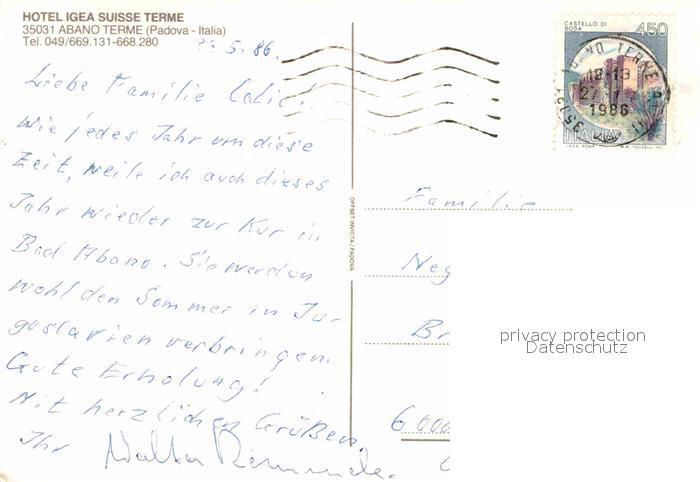 HOTEL IGEA SUISSE TERME
35031 ABANO TERME (Padova - Italia)
Tel. 049/669.131-668.280
5.86.
Liebe Familie
wie jedes Jahr um diese
Zeit, weile ich auch dieses
Jahr wieder zur Kur in
Bad Abano. Sie werden
wohl den Sommer in Ju-
goslavien verbringen.
Gute Erholung!
Mit herzlichen Grüßen
Ihr Walter
OFFSET INVICTA/PADOVA
CASTELLO DI
ROSA
450
ABANO TERME
18-19
1986
ITALIA
I.P.Z.S. ROMA
M.M. TUCCELLI INC.
Familie
Neg
Br
6000
privacy protection
Datenschutz